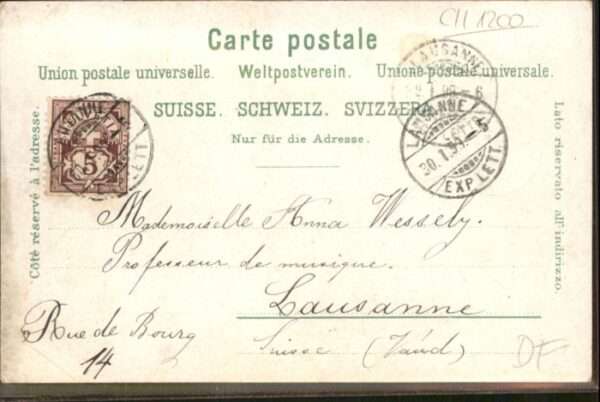 CH 1200
Carte postale
Union postale universelle. Weltpostverein. Unione postale universale.
SUISSE. SCHWEIZ. SVIZZERA.
Nur für die Adresse.
Côté réservé à l'adresse.
Lato riservato all'indirizzo.
5
LAUSANNE
LAUSANNE
EXP. LETT.
Mademoiselle Anna Wessely.
Professeur de musique.
Lausanne
Rue de Bourg
14
Suisse (Vaud)
DF